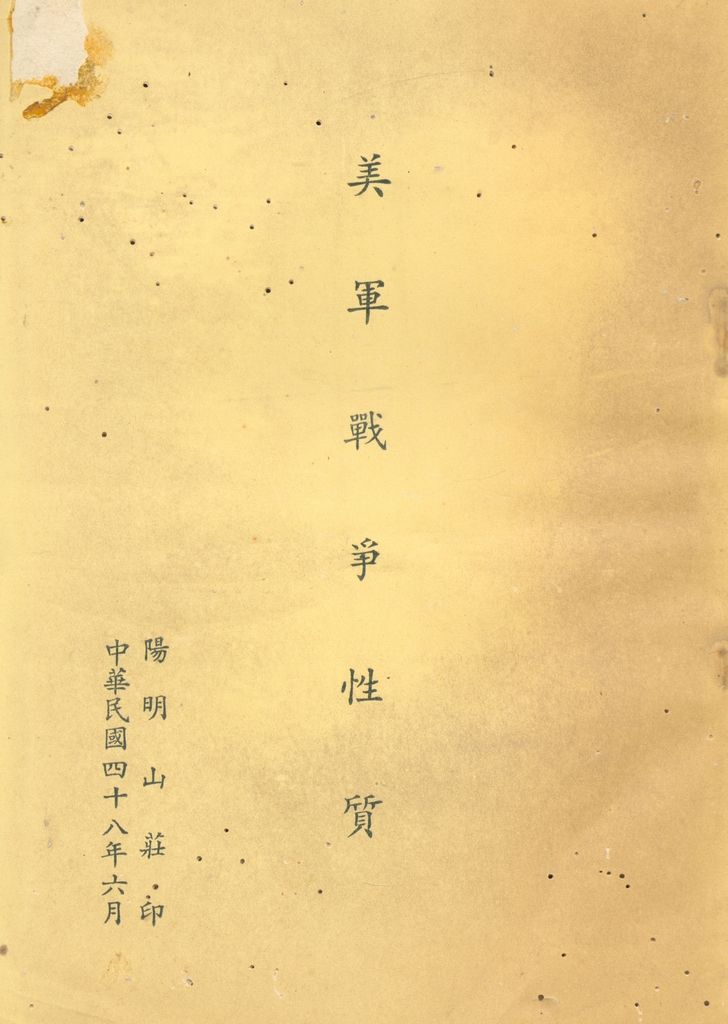 美軍戰爭性質
陽明山莊印
中華民國四十八年六月